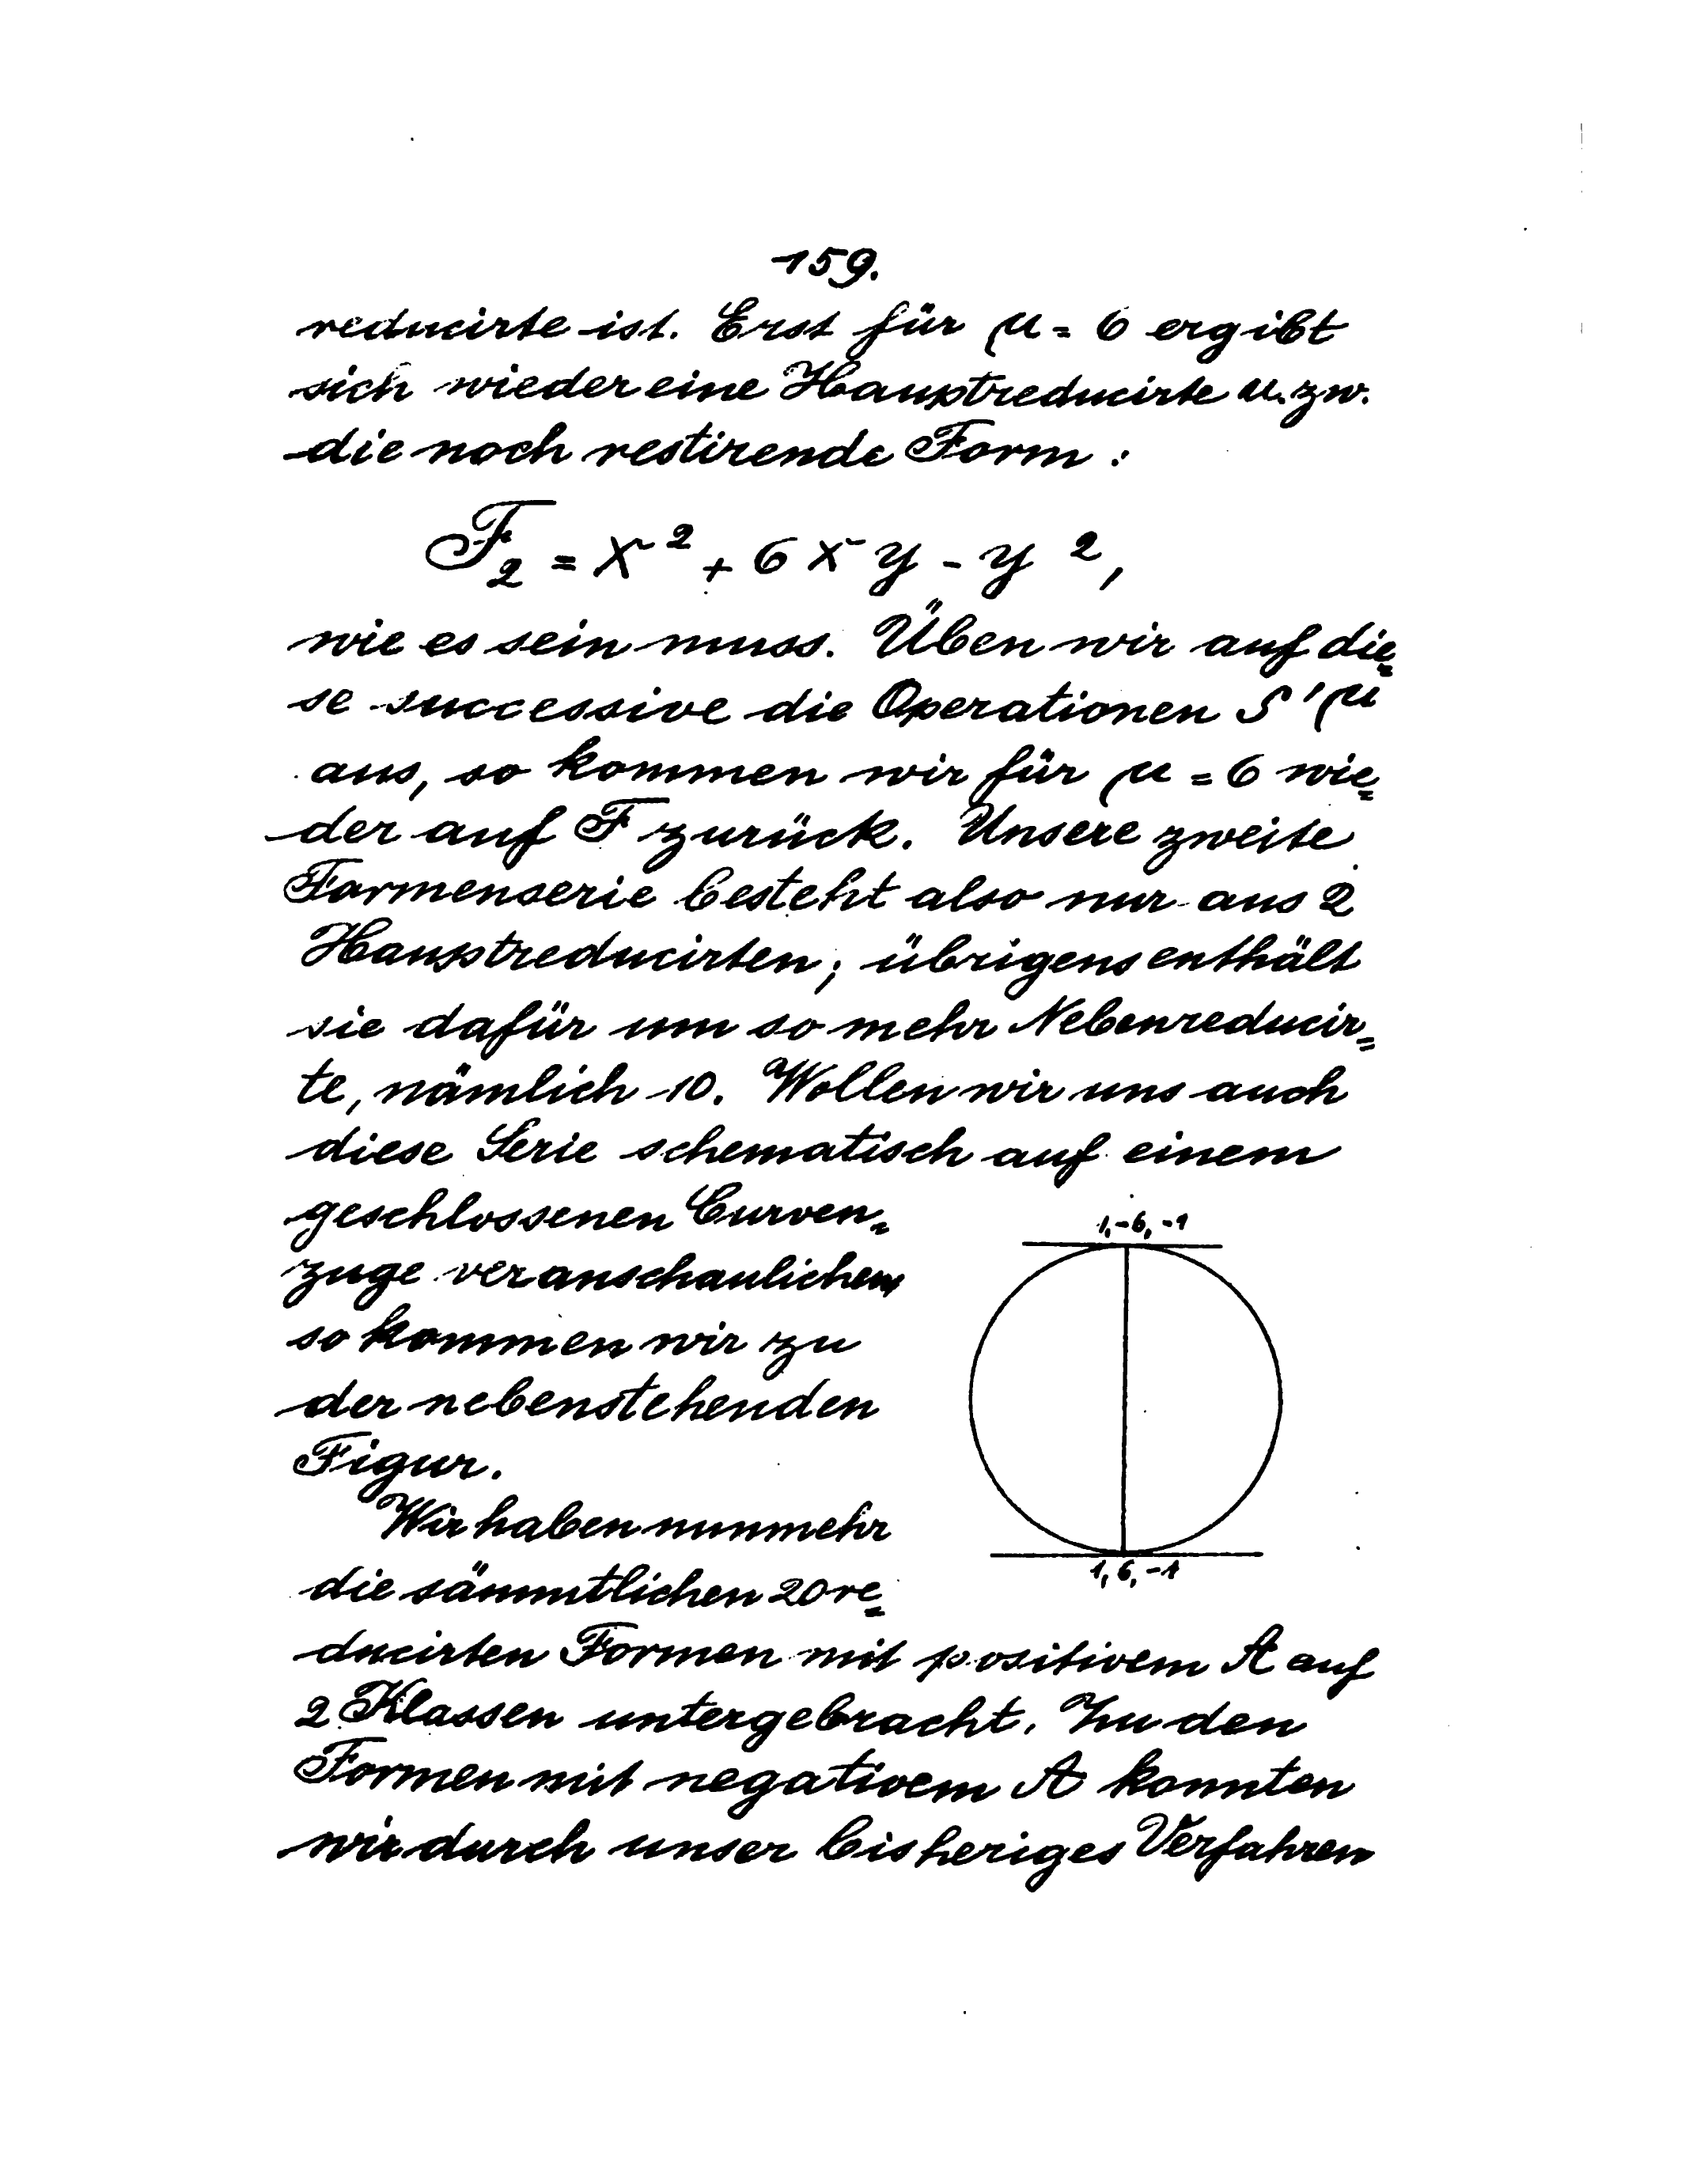 159.
reducirte ist. Erst für μ = 6 ergibt
sich wieder eine Hauptreducirte u. zw.
die noch restirende Form :
F₂ = x² + 6 x y - y²,
wie es sein muss. Üben wir auf die=
se successive die Operationen S'μ
aus, so kommen wir für μ = 6 wie=
der auf F zurück. Unsere zweite
Formenserie besteht also nur aus 2
Hauptreducirten; übrigens enthält
sie dafür um so mehr Nebenreducir=
te, nämlich 10. Wollen wir uns auch
diese Serie schematisch auf einem
geschlossenen Curven=
zuge veranschaulichen,
so kommen wir zu
der nebenstehenden
Figur.
1, -6, -1
1, 6, -1
Wir haben nunmehr
die sämmtlichen 20 re=
ducirten Formen mit positivem A auf
2 Klassen untergebracht. Zu den
Formen mit negativem A konnten
wir durch unser bisheriges Verfahren